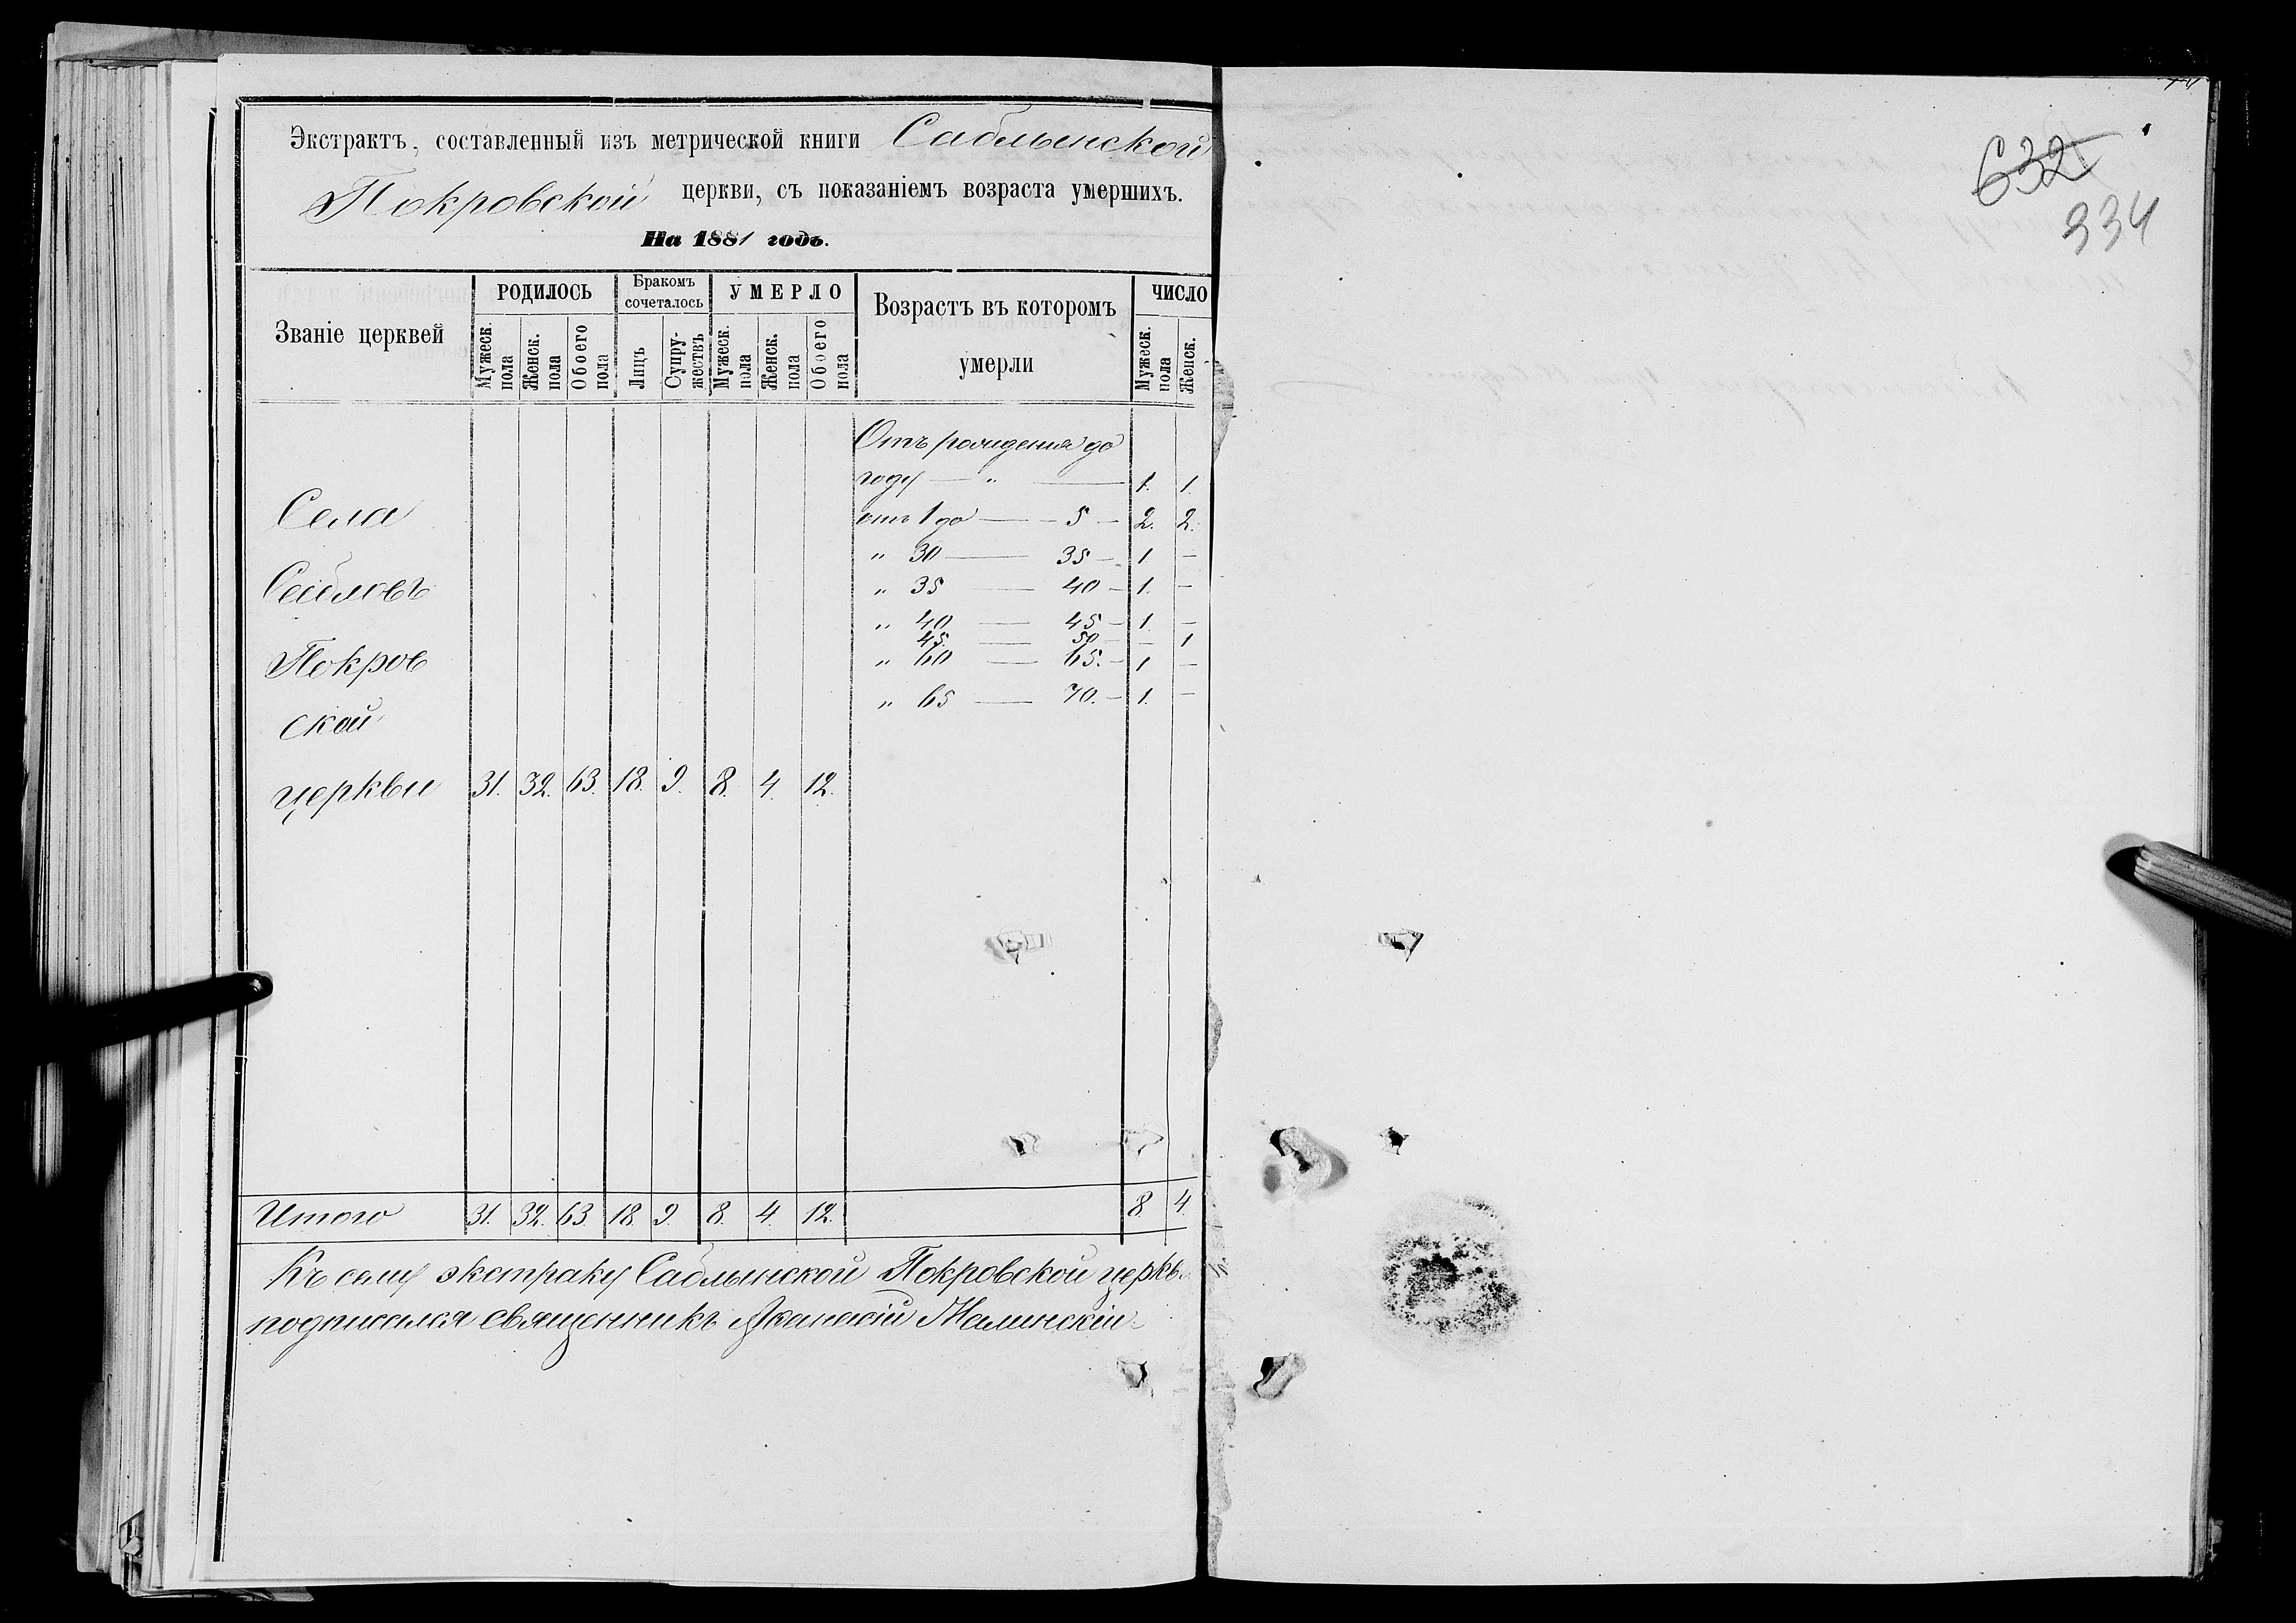 Экстрактъ, составленный изъ метрической книги Саблынской
Покровской церкви, съ показаніемъ возраста умершихъ.
На 1881 годъ.
Званіе церквей
РОДИЛОСЬ
Мужеск. пола
Женск. пола
Обоего пола
Бракомъ сочеталось
Лицъ
Супружествъ
УМЕРЛО
Мужеск. пола
Женск. пола
Обоего пола
Возрастъ въ которомъ
умерли
ЧИСЛО
Мужеск. пола
Женск.
Отъ рожденія до
году — „ — 1. 1.
отъ 1 до — 5 — 2. 2.
„ 30 — 35 — 1 —
„ 35 — 40 — 1. —
„ 40 — 45 — 1. —
45. — 50 — — 1
„ 60 — 65. — 1 —
„ 65 — 70. — 1. —
Села
Покров
ской
церкви 31. 32. 63. 18. 9. 8. 4. 12.
Итого 31. 32. 63. 18. 9. 8. 4. 12. 8. 4.
Къ сему экстраку Саблынской Покровской церкв
подписался священникъ Аѳанасій Малинскій
632
334